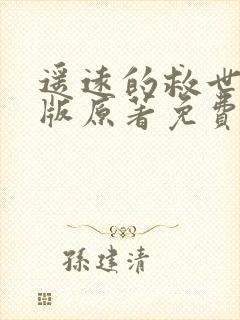 遥远的救世
版原著免費
孫建清